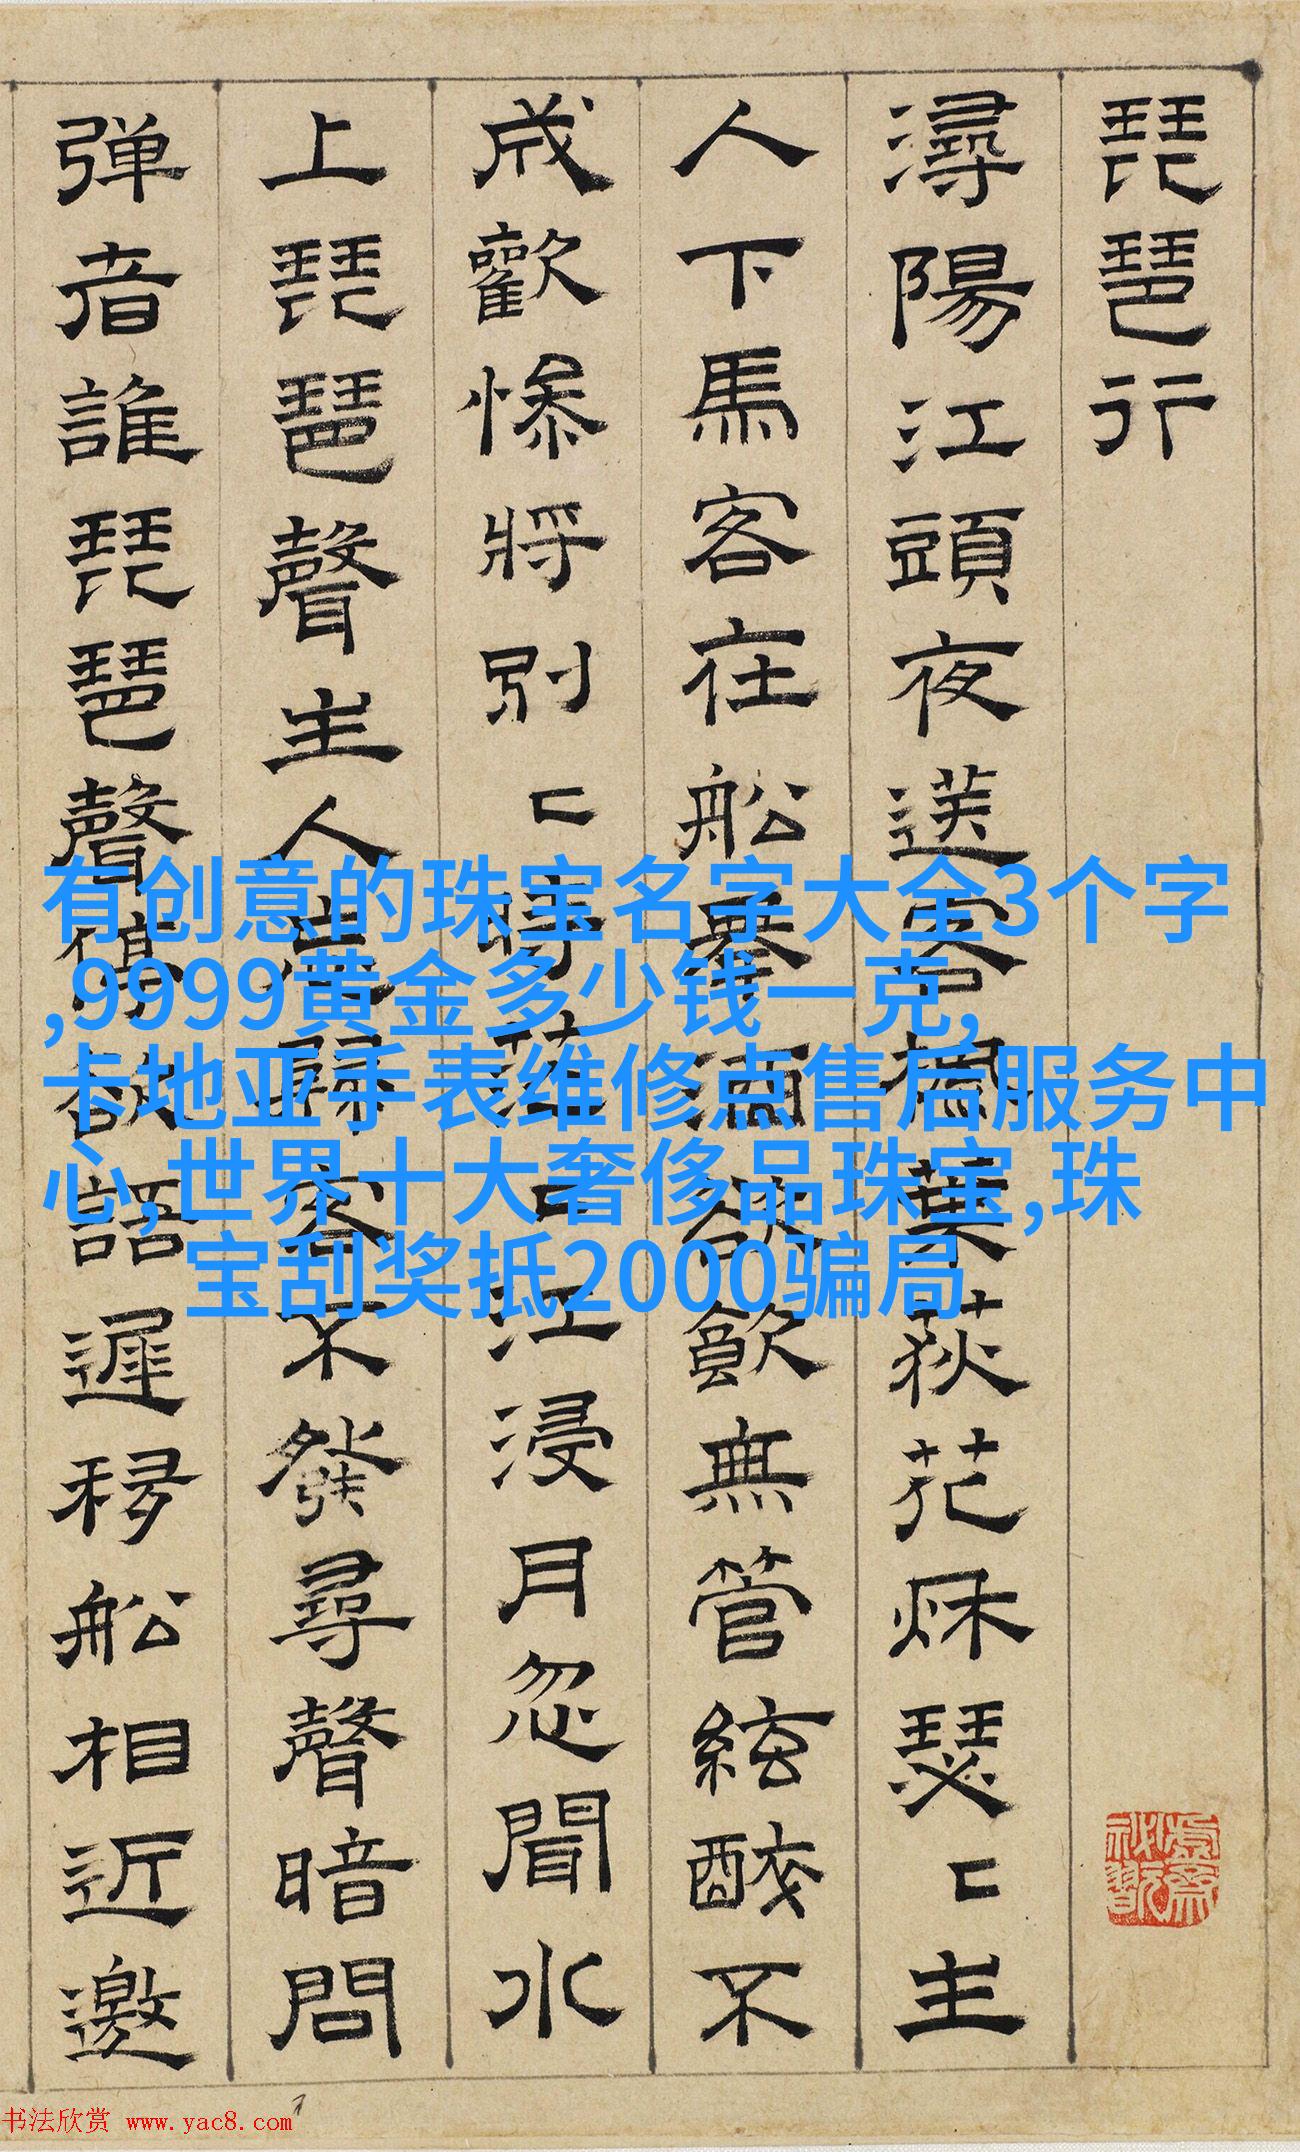 琵琶行
潯陽江頭夜送客楓葉荻花秌瑟〻主
人下馬客在船舉酒欲飲無管絃醉不
成歡慘將別〻時茫〻江浸月忽聞水
上琵琶聲主人忘歸客不發尋聲暗問
弹者誰琵琶聲停欲語遲移船相近邀
有创意的珠宝名字大全3个字
,9999黄金多少钱一克,
卡地亚手表维修点售后服务中
心,世界十大奢侈品珠宝,珠
宝刮奖抵2000骗局
书法欣赏 www.yac8.com